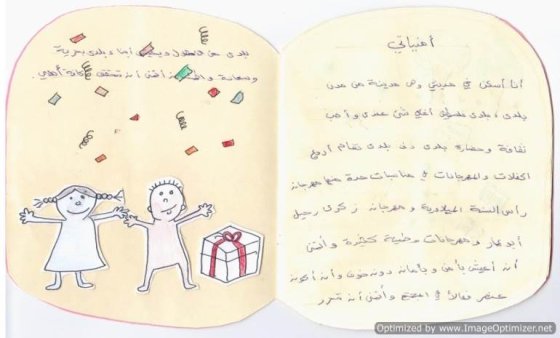 أمنياتي
أنا أسكن في مدينتي وهي مدينة من مدن
بلدي، بلدي فلسطين أغلى شيء عندي وأحب
ثقافة وحضارة بلدي بلدي تقام أروع
الحفلات والمهرجانات في مناسبات عدة منها مهرجان
رأس السنة الميلادية ومهرجان ذكرى رحيل
أبو عمار ومهرجانات وطنية كثيرة وأتمنى
أن أعيش بأمن وبأمان دون خوف وأن أكون
عنصر فعالاً في المجتمع وأتمنى أن تتحرر
بلدي من بلدي بحرية
وسعادة أتمنى أن تتحقق
Optimized by www.ImageOptimizer.net